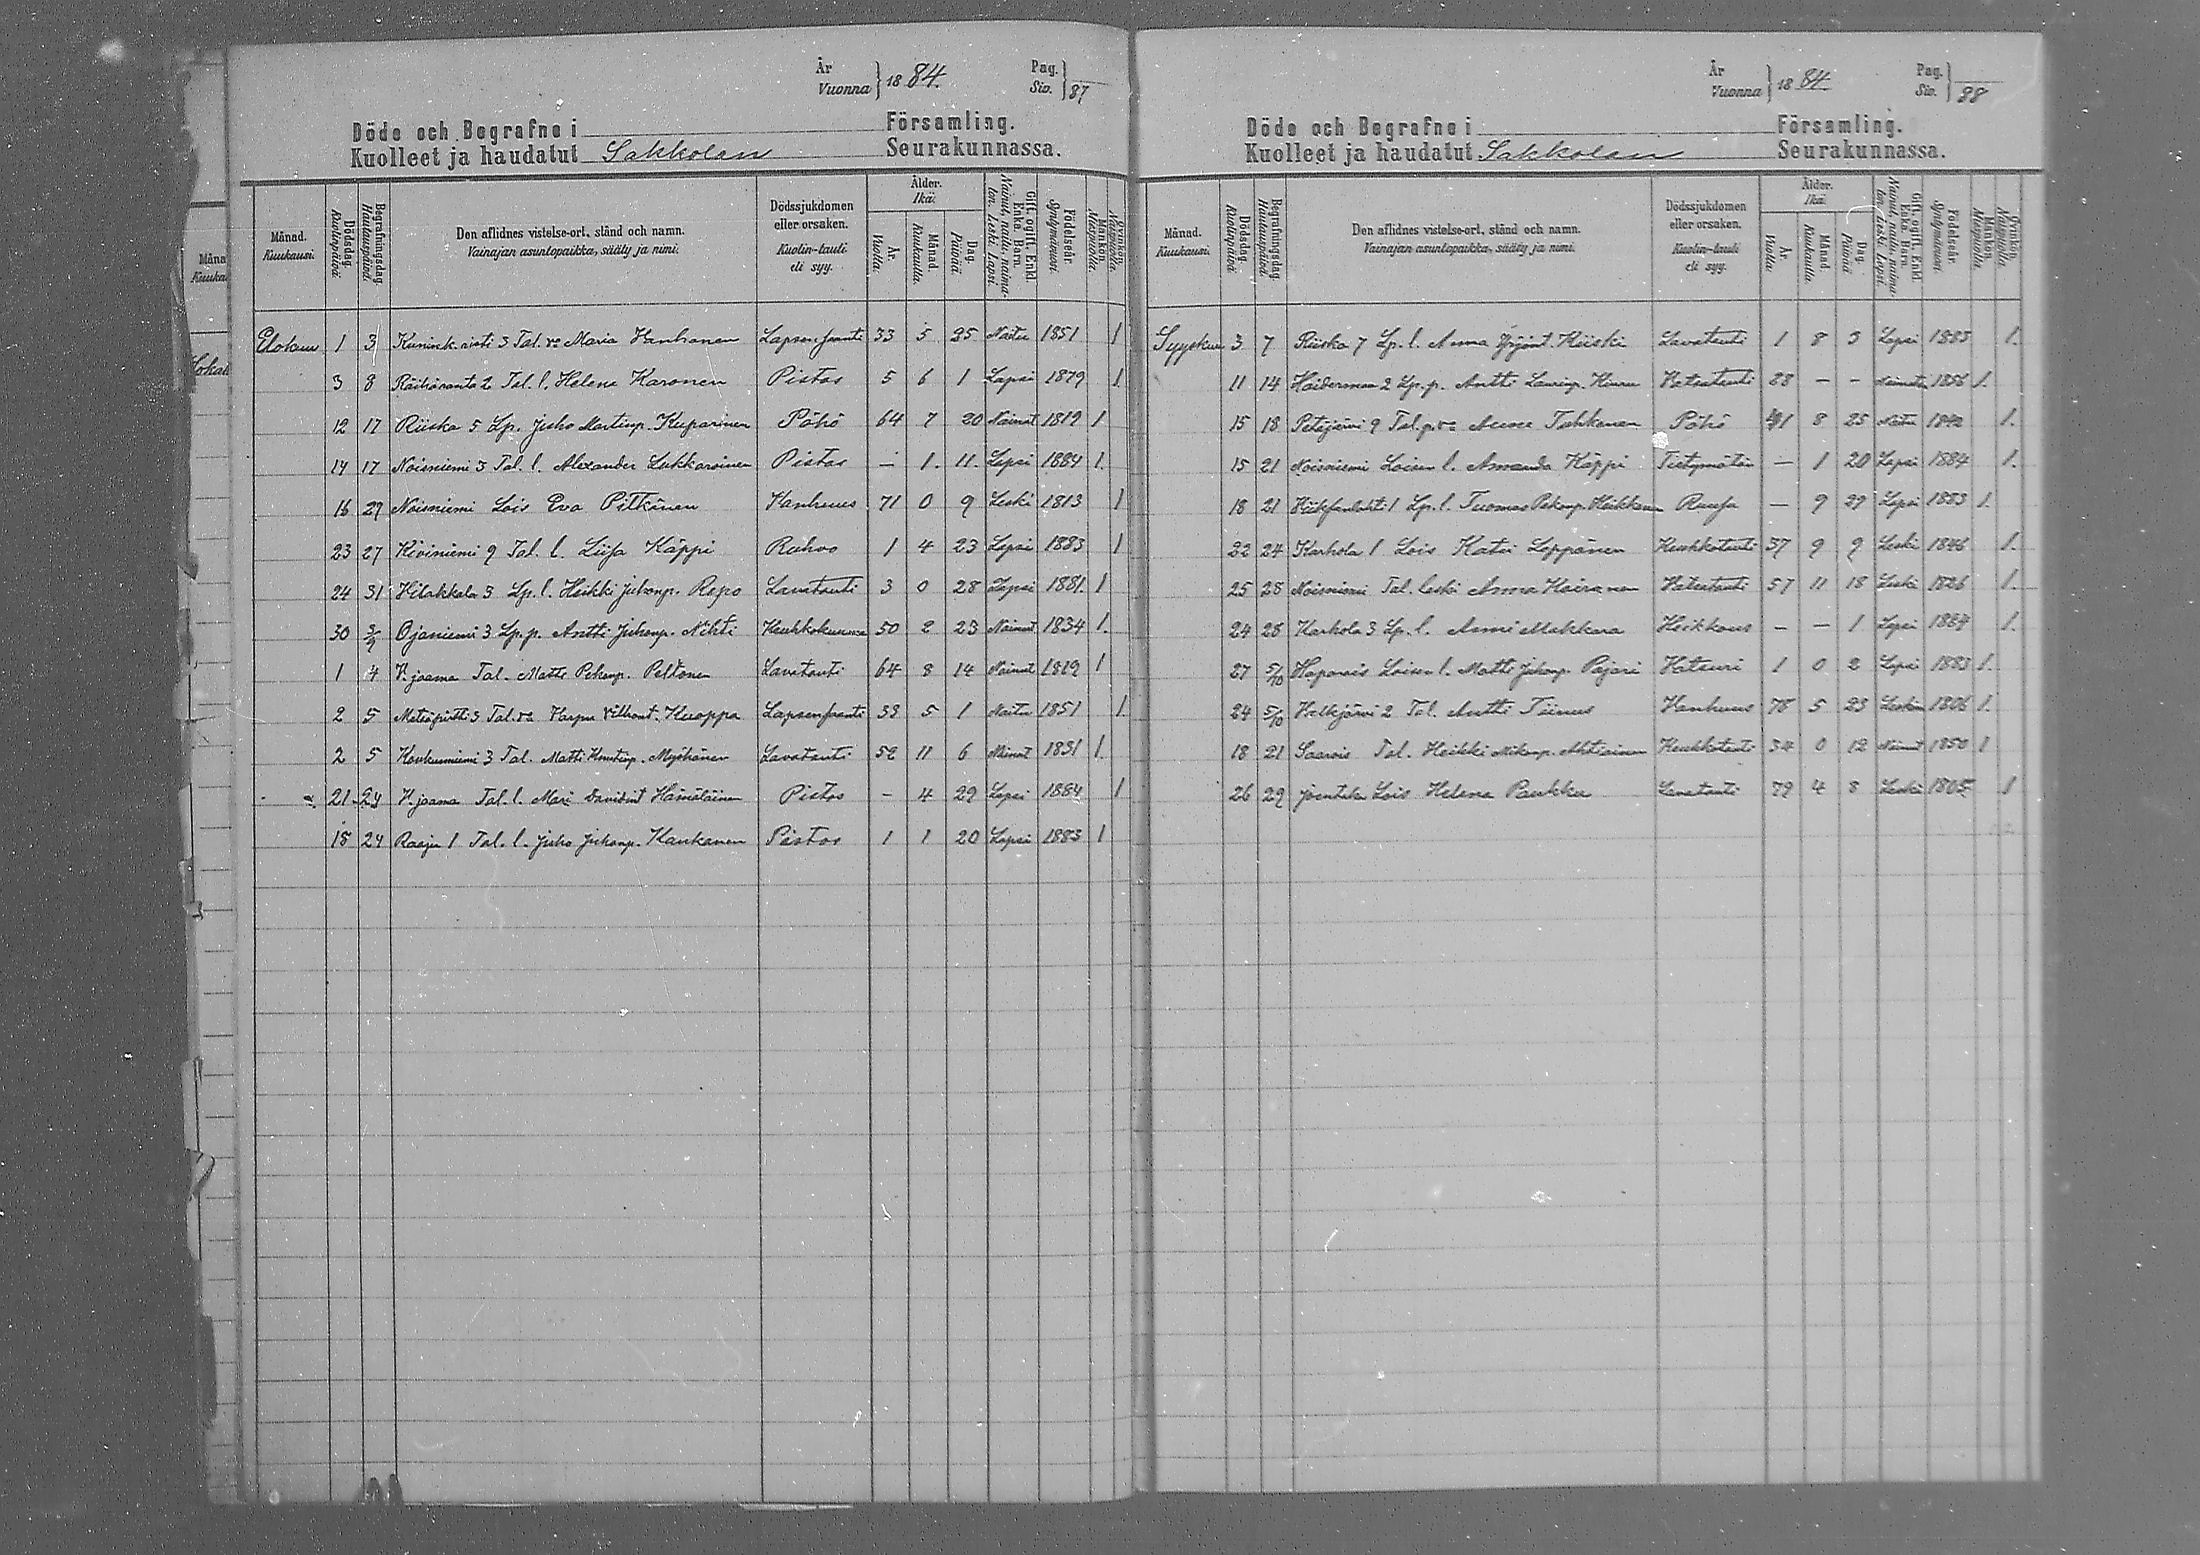 År
Vuonna } 1884.
Pag.
Siv. } 87
Döde och Begrafne i Församling.
Kuolleet ja haudatut Sakkolan Seurakunnassa.
Månad. Kuukausi.
Dödsdag. Kuolinpäivä.
Begrafningsdag. Hautauspäivä.
Den aflidnes vistelse-ort, stånd och namn. Vainajan asuntopaikka, sääty ja nimi.
Dödssjukdomen eller orsaken. Kuolin-tauti eli syy.
Ålder. Ikä.
År. Vuotta.
Månad. Kuukautta.
Dag. Päivää.
Gift, ogift, Enkl. Enka. Barn. Nainut, naitu, naimaton. Leski. Lapsi.
Födelseår. Syntymävuosi.
Mankön. Miespuolia.
Qvinkön. Naispuolia.
Elokuu 1 3 3 Tal. va Maria Vanhanen Lapsenjuanti 33 5 25 Naitu 1851 1
3 8 Räihäranta 2 Tal. l. Helena Karonen Pistos 5 6 1 Lapsi 1879 1.
12 17 Riiska 5 Lp. Juho Martinp. Kuparinen Pöhö 64 7 20 Nainut 1819 1
14 17 Noisniemi 3 Tal. l. Alexander Lukkaroinen Pistos – 1. 11. Lapsi 1884 1.
16 29 Noisniemi Lois Eva Pitkänen Vanhuus 71 0 9 Leski 1813 1
23 27 Kiviniemi 9 Tal. l. Liisa Käppi Rohvo 1 4 23 Lapsi 1883 1
24 31 Vilakkala 5 Lp. l. Heikki Juhonp. Repo Lavatauti 3 0 28 Lapsi 1881. 1.
30 3/9 Ojaniemi 3 Lp. p. Antti Juhonp. Nihti 50 2 23 Nainut 1834 1.
1 4 V. jaama Tal. Matti Pekanp. Peltonen Lavatauti 64 8 14 Nainut 1819 1
2 5 3 Tal. va Vilhont. Kuoppa Lapsenjuanti 33 5 1 Naitu 1851 1.
2 5 3 Tal. Matti Myöhänen Lavatauti 52 11 6 Nainut 1831 1.
21 24 V. jaama Tal. l. Mari Davidint Hämäläinen Pistos – 4 29 Lapsi 1884 1
18 24 Raaju 1 Tal. l. Juho Juhonp. Kaukanen Pistos 1 1 20 Lapsi 1883 1
År
Vuonna } 1884.
Pag.
Siv. } 88
Döde och Begrafne i Församling.
Kuolleet ja haudatut Sakkolan Seurakunnassa.
Månad. Kuukausi.
Dödsdag. Kuolinpäivä.
Begrafningsdag. Hautauspäivä.
Den aflidnes vistelse-ort, stånd och namn. Vainajan asuntopaikka, sääty ja nimi.
Dödssjukdomen eller orsaken. Kuolin-tauti eli syy.
Ålder. Ikä.
År. Vuotta.
Månad. Kuukautta.
Dag. Päivää.
Gift, ogift, Enkl. Enka. Barn. Nainut, naitu, naimaton. Leski. Lapsi.
Födelseår. Syntymävuosi.
Mankön. Miespuolia.
Qvinkön. Naispuolia.
Syyskuu 3 7 Riiska 7 Lp. l. Anna Yrjönt. Kiiski Lavatauti 1 8 3 Lapsi 1883 1.
11 14 2 Lp. p. Antti Laurinp. Kiuru Vatsatauti 28 – – 1856 1.
15 18 Petäjärvi 9 Tal. p. va Anna Tuhkanen Pöhö 41 8 25 Naitu 1842 1.
15 21 Noisniemi Loisen l. Amanda Käppi Tietymätön – 1 20 Lapsi 1884 1.
18 21 1 Lp. l. Tuomas Pekanp. Heikkinen – 9 29 Lapsi 1883 1.
22 24 Karhola 1 Lois Katri Leppänen Keuhkotauti 37 9 9 Leski 1846 1.
25 28 Noisniemi Tal. leski Anna Hairanen Vatsatauti 57 11 18 Leski 1826 1.
24 28 Karhola 3 Lp. l. Anni Makkara Heikkous – – 1 Lapsi 1884 1.
27 5/10 Haparais Loisen l. Matti Juhonp. Pajari 1 0 2 Lapsi 1883 1.
24 5/10 2 Tal. Antti Tiinus Vanhuus 78 5 23 Leskim 1806 1.
18 21 Saarois Tal. Heikki Ahtiainen Keuhkotauti 34 0 12 Nainut 1850 1
26 29 Lois Helena Paukku Lavatauti 79 4 8 Leski 1805 1